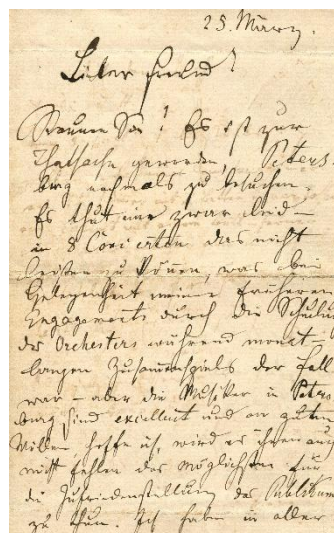 25. März.
Lieber Freund!
Staunen Sie! Es ist zur
Thatsache geworden, Peters-
burg nochmals zu besuchen.
Es thut mir zwar leid –
in 8 Concerten das nicht
leisten zu können, was bei
Gelegenheit meiner früheren
Engagements durch die Schulung
des Orchesters während monat-
langen Zusammenspiels der Fall
war – aber die Musiker in Peters
burg sind excellent und an gutem
Willen hoffe ich, wird es ihnen auch
nicht fehlen das Möglichste für
die Zufriedenstellung des Publikums
zu thun. Ich habe in aller